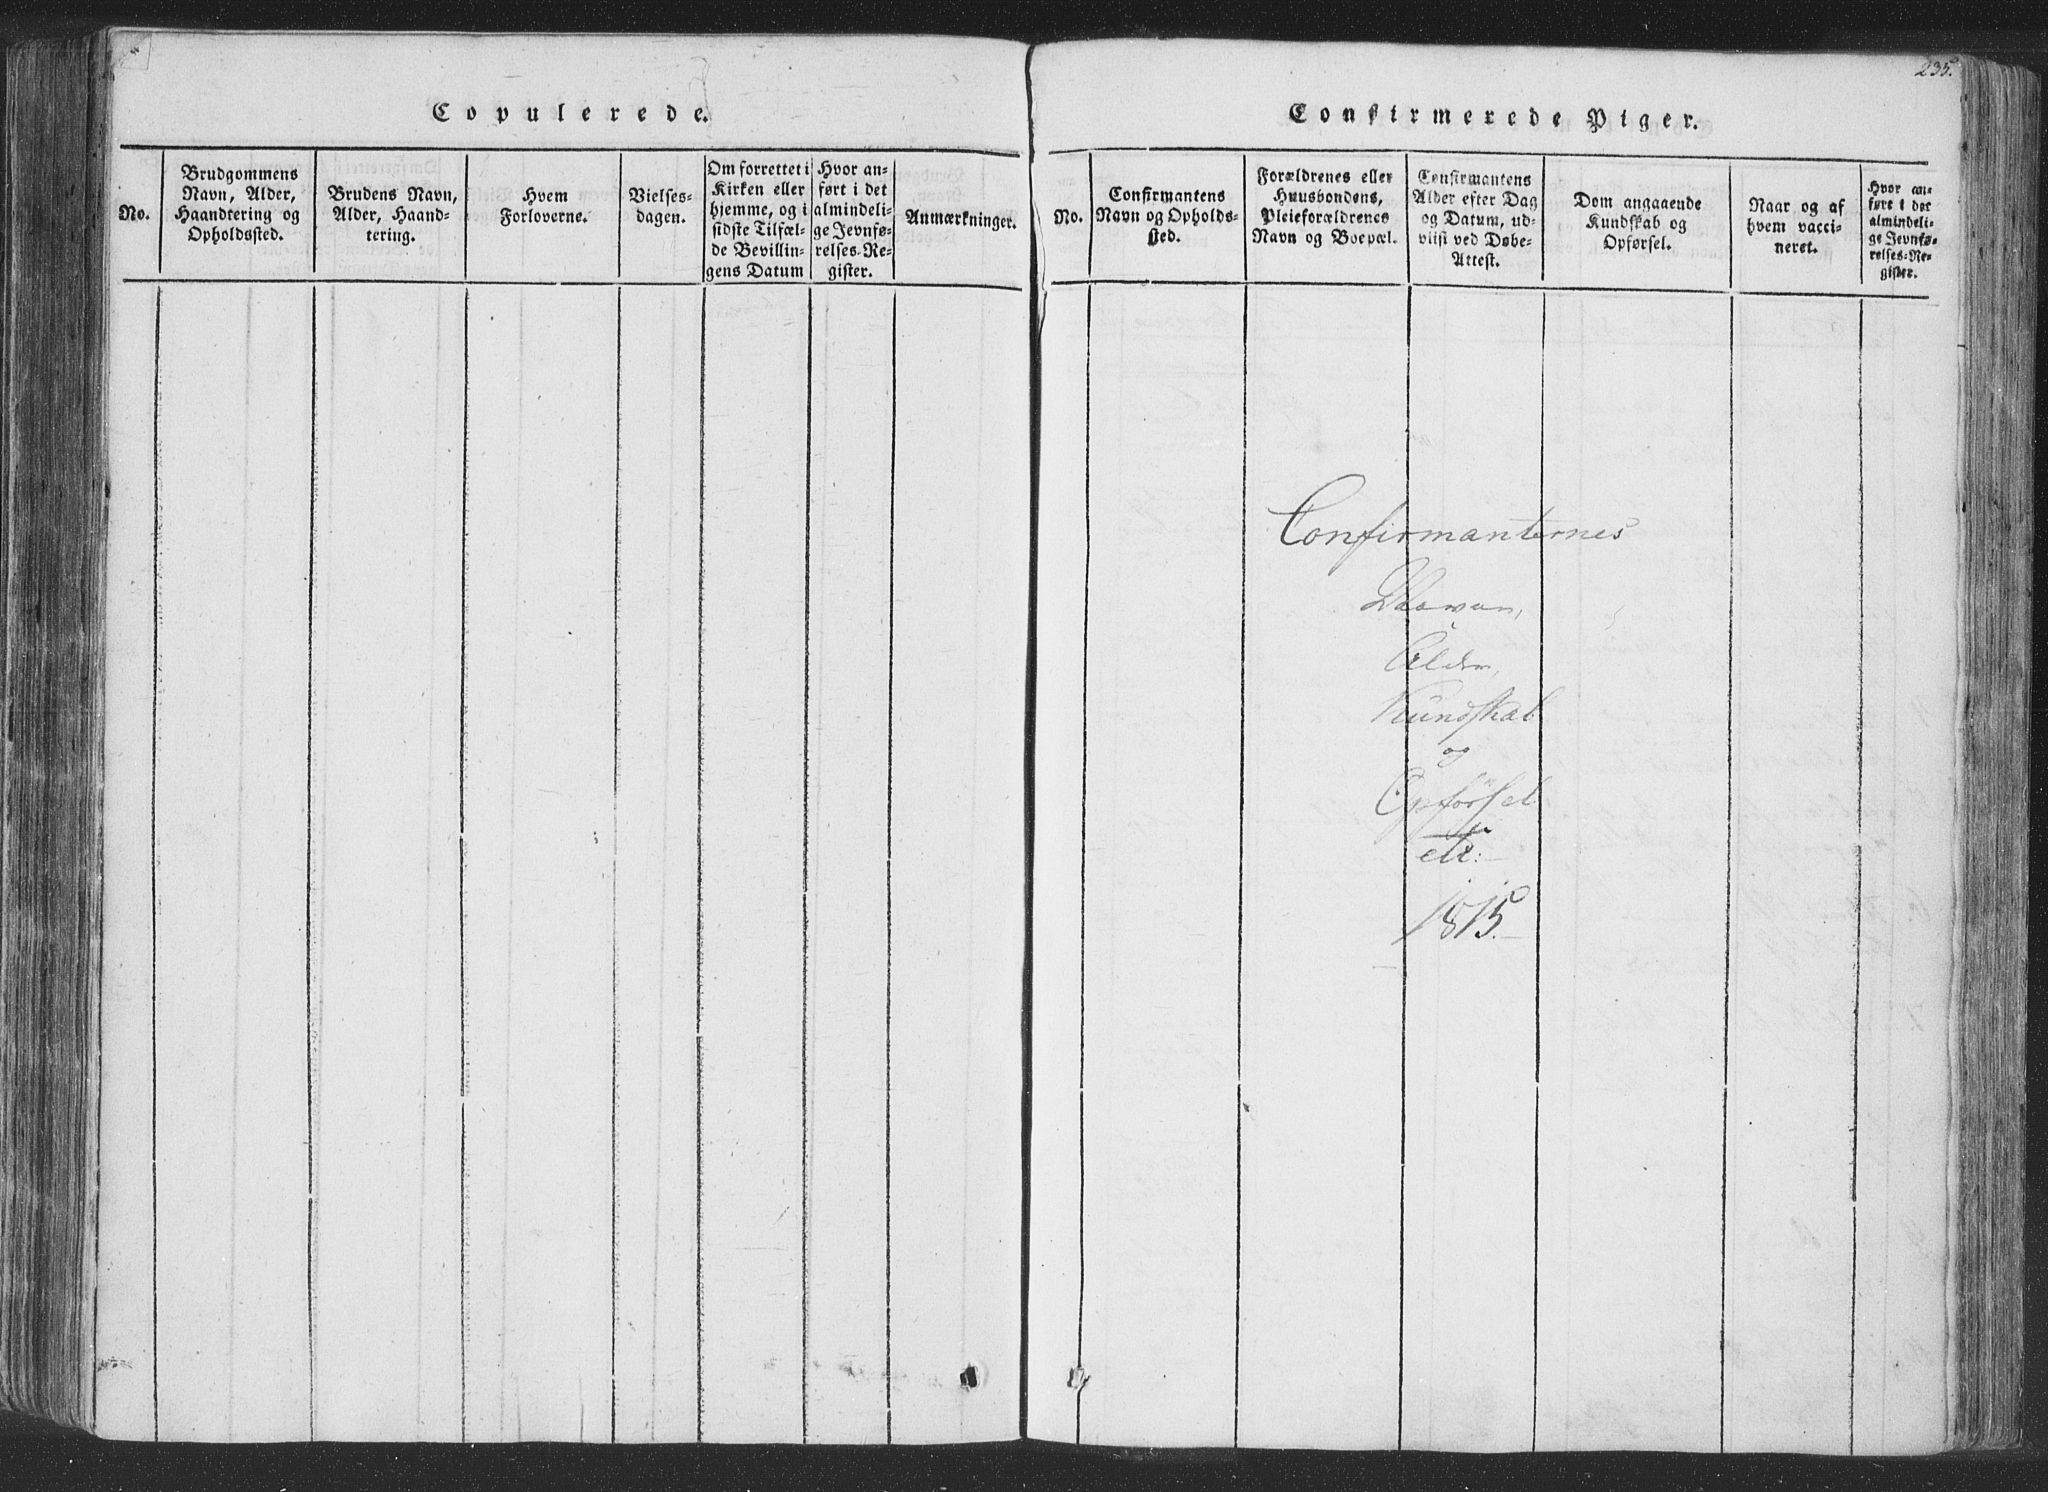 Copulerede.
No.
Brudgommens
Navn, Alder,
Haandtering og
Opholdssted.
Brudens Navn,
Alder, Haand-
tering.
Hvem
Forloverne.
Vielses-
dagen.
Om forrettet i
Kirken eller
hjemme, og i
sidste Tilfæl-
de Bevillin-
gens Datum
Hvor an-
ført i det
almindeli-
ge Jevnfø-
relses-Re-
gister.
Anmærkninger.
235.
Confirmerede Piger.
No.
Confirmantens
Navn og Opholds-
sted.
Forældrenes eller
Huusbondens,
Pleieforældrenes
Navn og Boepæl.
Confirmantens
Alder efter Dag
og Datum, ud-
viist ved Døbe-
Attest.
Dom angaaende
Kundskab og
Opførsel.
Naar og af
hvem vacci-
neret.
Hvor an-
ført i det
almindeli-
ge Jevnfø-
relses-Re-
gister.
Confirmanternes
Navn,
Alder,
Kundskab
og
Opførsel
etc:
1815.